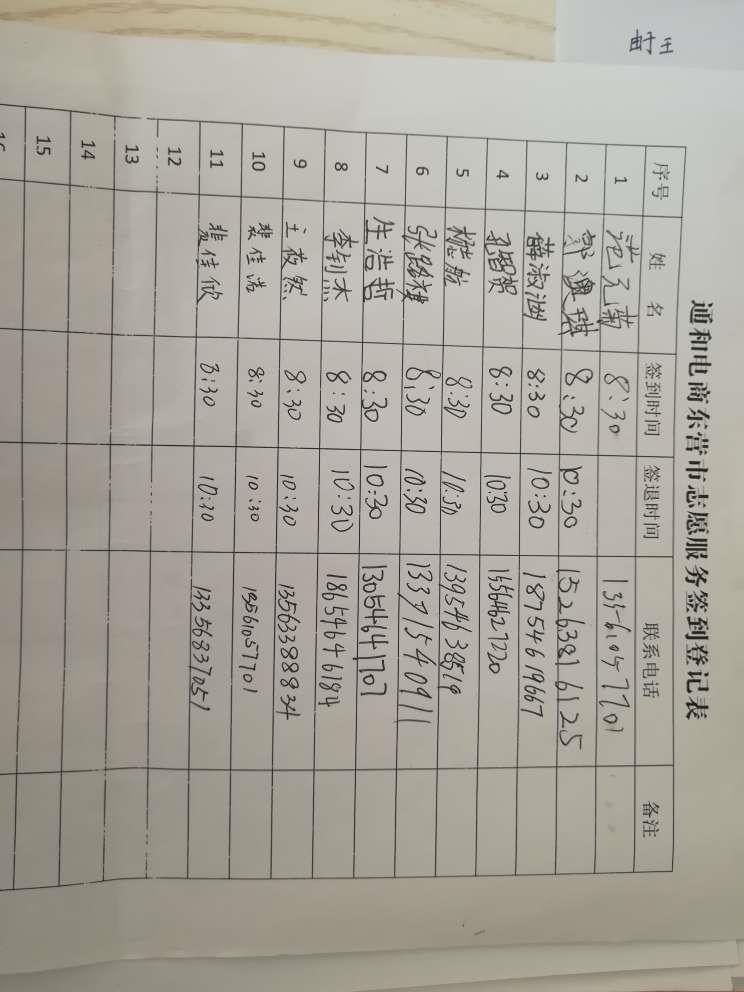 由于王
通和电商东营市志愿服务签到登记表
序号 姓 名 签到时间 签退时间 联系电话 备注
1 范元菊 8:30 13561057701
2 郭澳琪 8:30 10:30 15263816125
3 薛淑湘 8:30 10:30 18754619667
4 孔智贺 8:30 10:30 15564627220
5 杨航 8:30 10:30 13954638519
6 张路授 8:30 10:30 13371540911
7 生浩哲 8:30 10:30 13054641707
8 李钊杰 8:30 10:30 18654646184
9 王莜然 8:30 10:30 13563388834
10 裴佳浩 8:30 10:30 13561057701
11 裴佳欣 8:30 10:30 13356837051
12
13
14
15
16